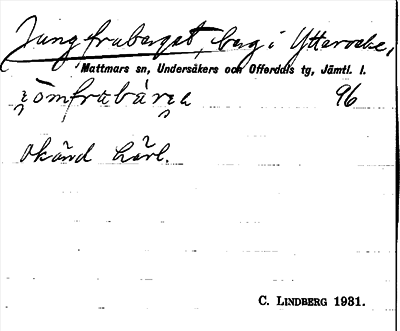 Jungfruberget, berg i Ytterocke,
Mattmars sn, Undersåkers och Offerdals tg, Jämtl. l.
jömfrubärja 96
okänd härl.
C. LINDBERG 1931.